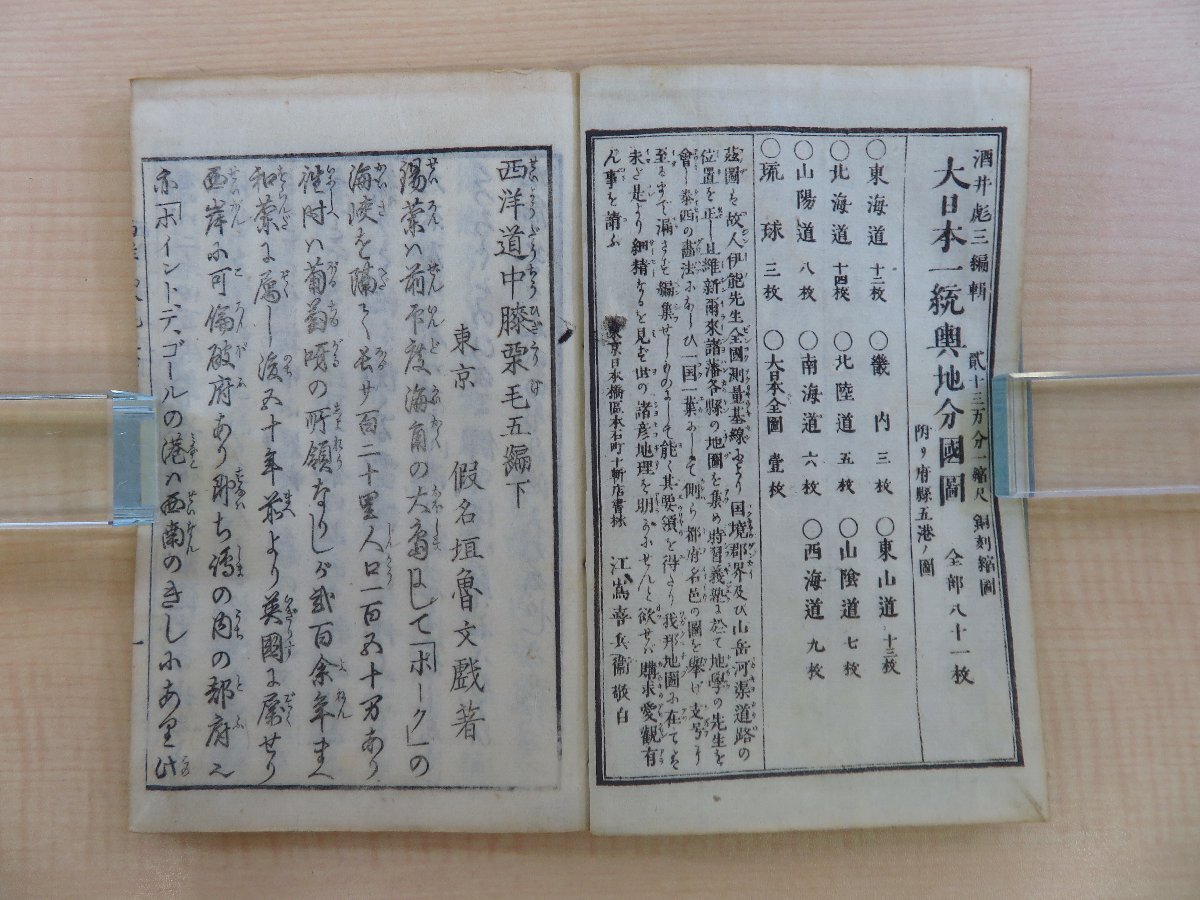 酒井彪三編輯 貳十三万分一縮尺 銅刻縮圖
大日本一統輿地分國圖 全部八十一枚
附リ府縣五港ノ圖
○東海道 十二枚 ○畿内 三枚 ○東山道 十三枚
○北海道 十四枚 ○北陸道 五枚 ○山陰道 七枚
○山陽道 八枚 ○南海道 六枚 ○西海道 九枚
○琉球 三枚 ○大日本全圖 壹枚
茲圖ハ故人伊能先生全國測量基線により国境郡界及ひ山岳河渠道路の
位置を正し且維新爾來諸藩各縣の地圖を集め時習義塾に於て地學の先生を
會し泰西の畫法にならひ一国一葉にして側ら都府名邑の圖を擧げ支号に
至るまで漏さず編集せしものにして能く其要領を得たり我邦地圖に在てハ
未と是より細精なるを見ず世の諸彦地理を明かにせんと欲せバ購求愛観有
ん事を請ふ
東京日本橋區本石町十軒店書林 江嶌喜兵衞敬白
西洋道中膝栗毛五編下
東京 假名垣魯文戯著
錫蘭ハ前印度海角の大嶌にして「ポーク」の
海峡を隔て長サ百二十里人口一百五十万あり
往時ハ葡萄呀の所領なりしが貳百余年まへ
和蘭に属し後五十年前より英國に属せり
西岸に可倫破府あり即ち嶋の内の都府也
亦「ポイントデゴールの港ハ西南のきしにあり此